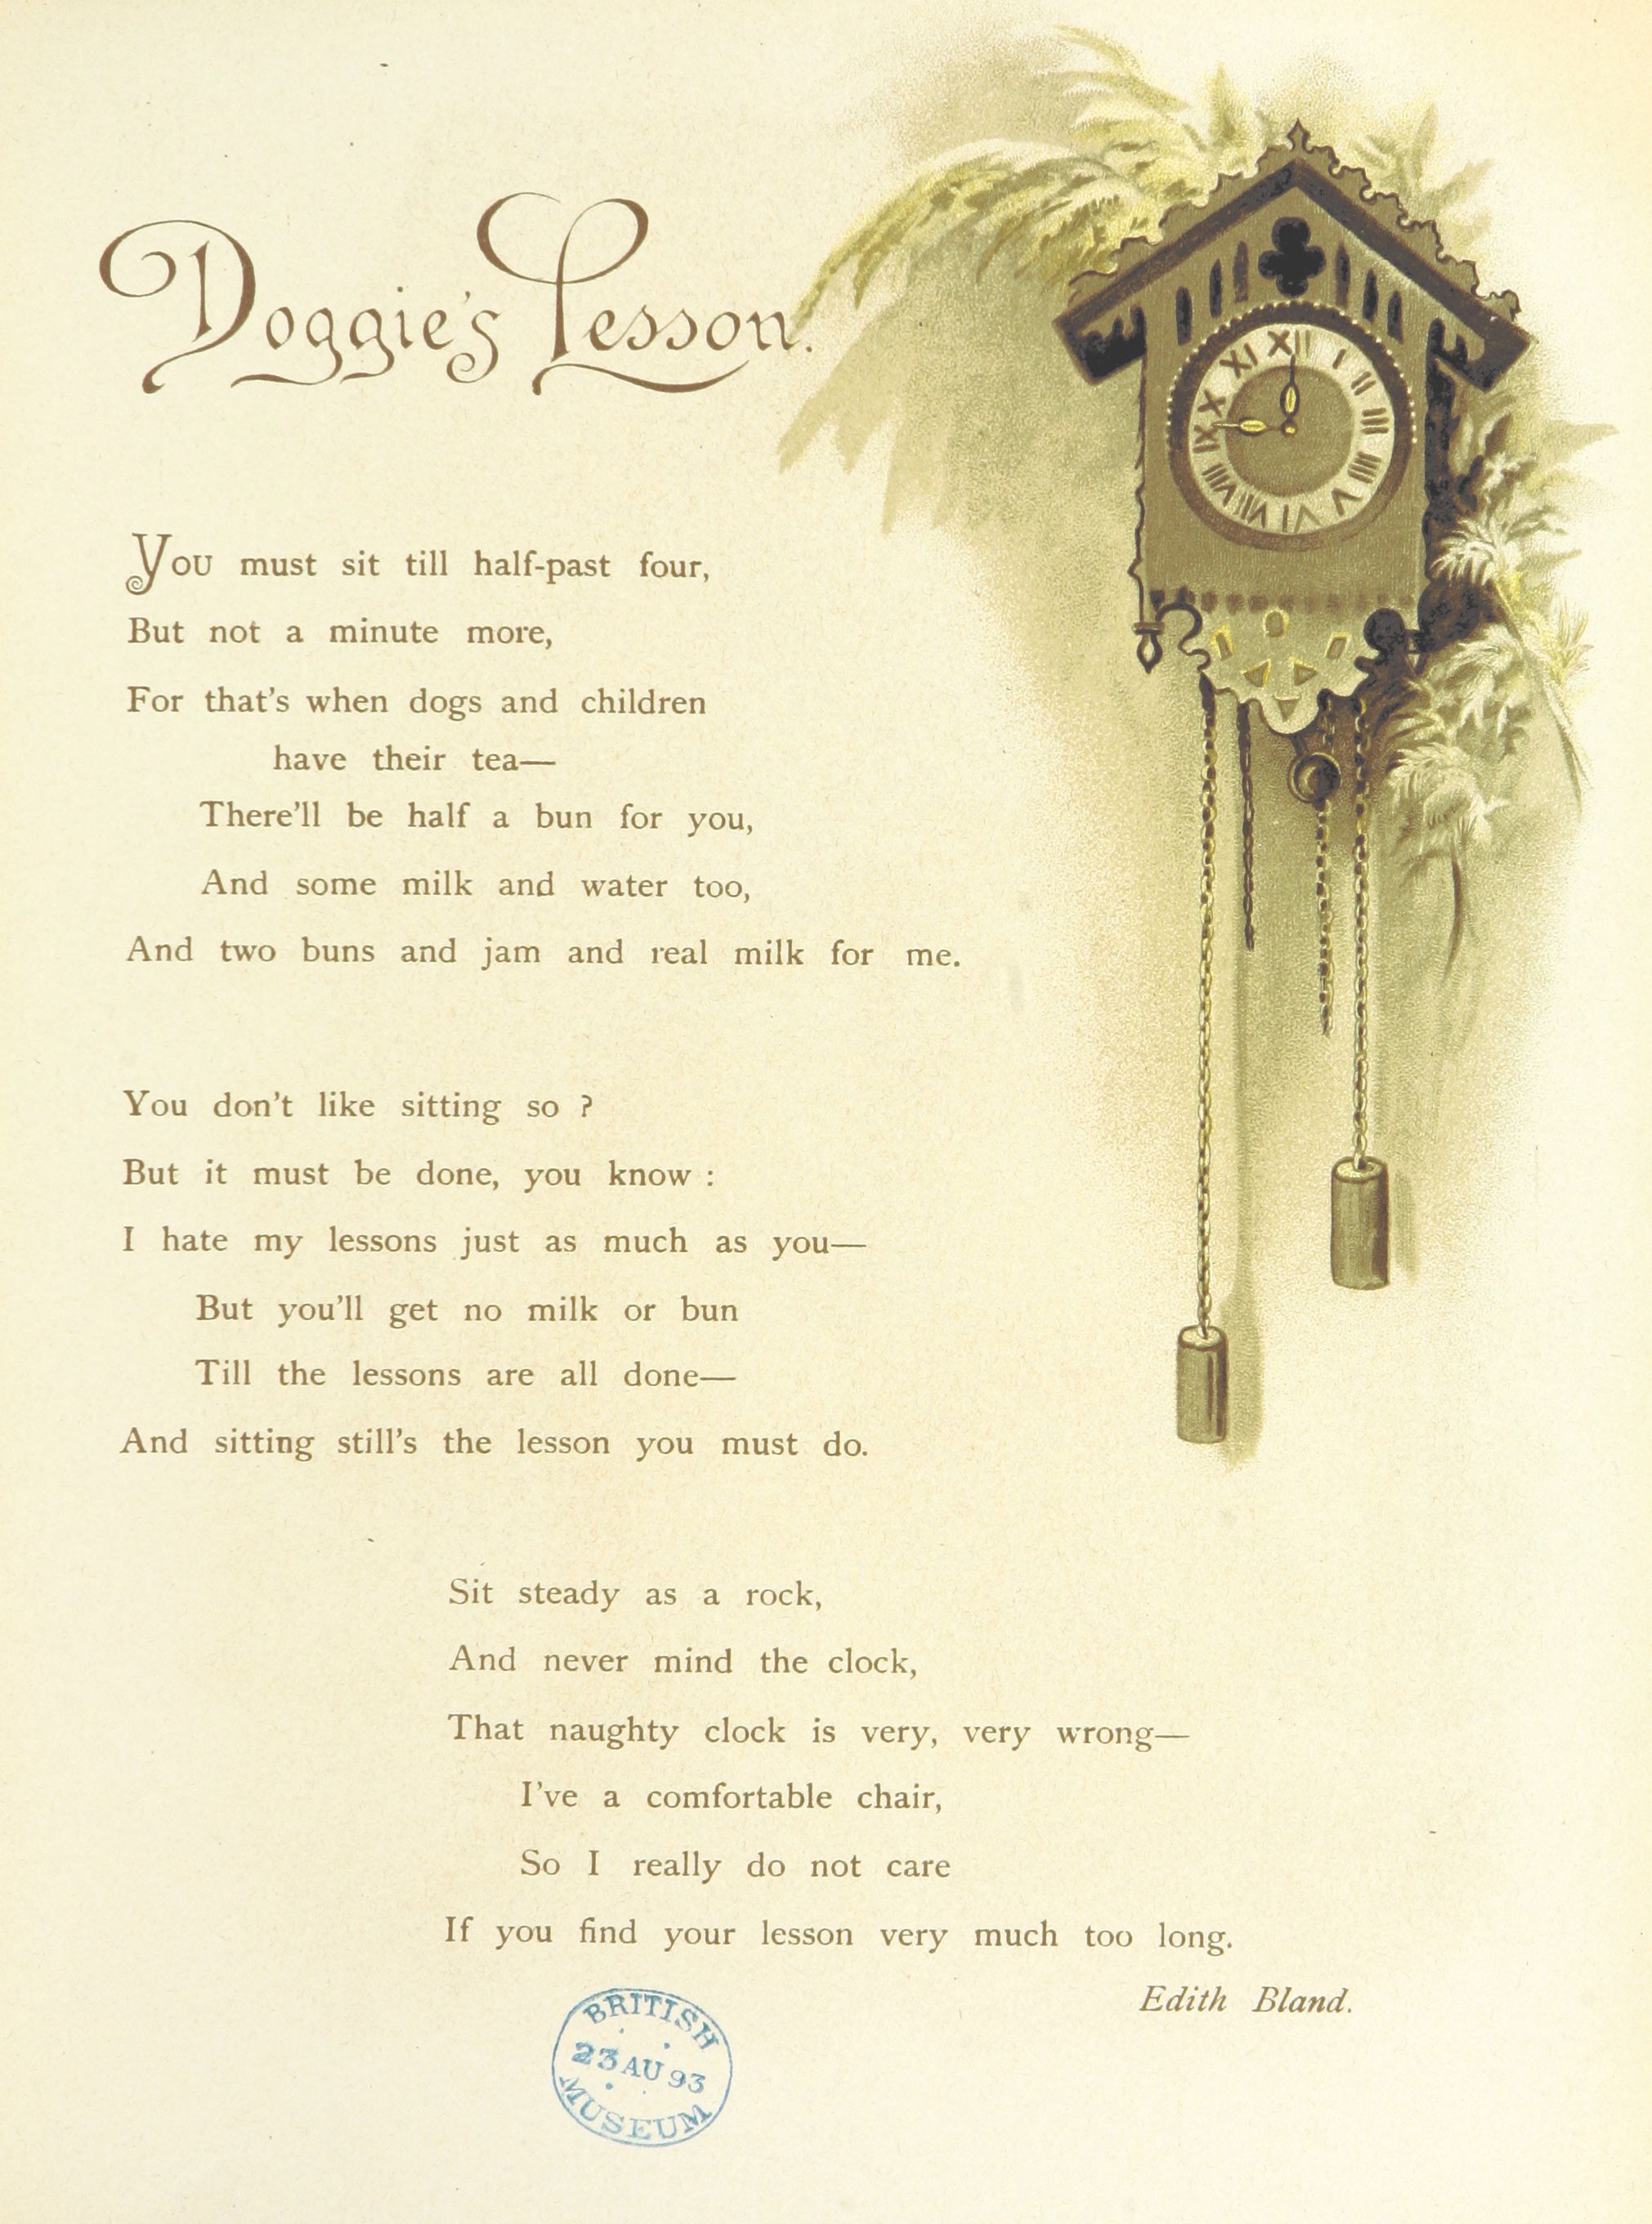 Doggie's Lesson.
You must sit till half-past four,
But not a minute more,
For that's when dogs and children
have their tea—
There'll be half a bun for you,
And some milk and water too,
And two buns and jam and real milk for me.
You don't like sitting so ?
But it must be done, you know :
I hate my lessons just as much as you—
But you'll get no milk or bun
Till the lessons are all done—
And sitting still's the lesson you must do.
Sit steady as a rock,
And never mind the clock,
That naughty clock is very, very wrong—
I've a comfortable chair,
So I really do not care
If you find your lesson very much too long.
Edith Bland.
XII
I
II
III
IIII
V
VI
VII
VIII
IX
X
XI
BRITISH
23 AU 93
MUSEUM